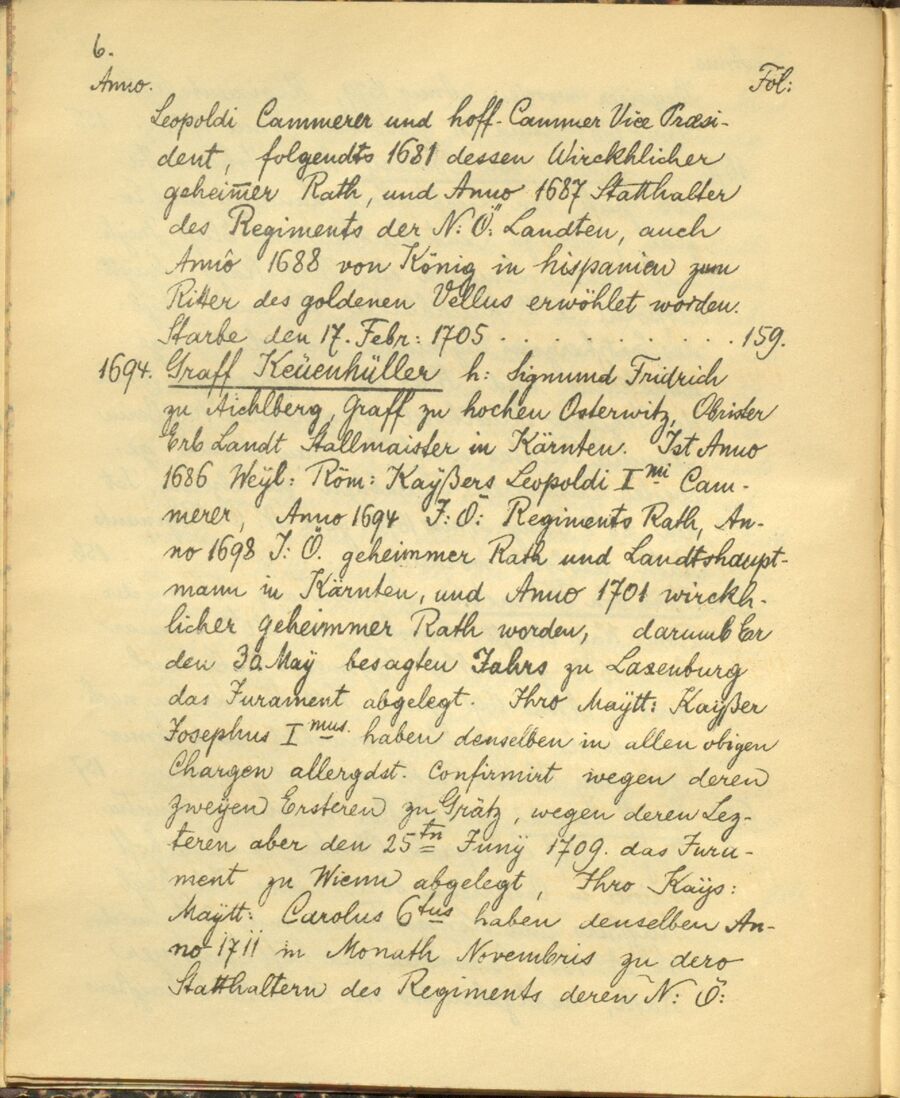 6.
Anno. Fol:
Leopoldi Cammerer und hoff-Cammer Vice Præsi-
dent, folgendts 1681 dessen Wirckhlicher
geheim̄er Rath, und Anno 1687 Statthalter
des Regiments der N: Ö: Landten, auch
Annô 1688 von König in hispanien zum
Ritter des goldenen Vellus erwöhlet worden.
Starbe den 17. Febr: 1705 . . . . . . . . . . . 159.
1694. Graff Keüenhüller h: Sigmund Fridrich
zu Aichlberg, Graff zu hochen Osterwitz, Obrister
Erb Landt Stallmaister in Kärnten. Ist Anno
1686 Weyl: Röm: Kayßers Leopoldi I mi Cam-
merer, Anno 1694 I: Ö: Regiments Rath, An-
no 1698 I: Ö. geheimmer Rath und Landtshaupt-
mann in Kärnten, und Anno 1701 wirckh-
licher geheimmer Rath worden, darumb Er
den 30 Maÿ besagten Jahrs zu Laxenburg
das Jurament abgelegt. Ihro Maÿtt: Kaÿßer
Josephus I mus. haben denselben in allen obigen
Chargen allergdst. Confirmirt wegen deren
zweÿen Ersteren zu Grätz, wegen deren Lez-
teren aber den 25tn Junÿ 1709. das Jura-
ment zu Wienn abgelegt, Ihro Kaÿs:
Maÿtt: Carolus 6tus haben denselben An-
no 1711 in Monath Novembris zu dero
Statthaltern des Regiments deren N: Ö: